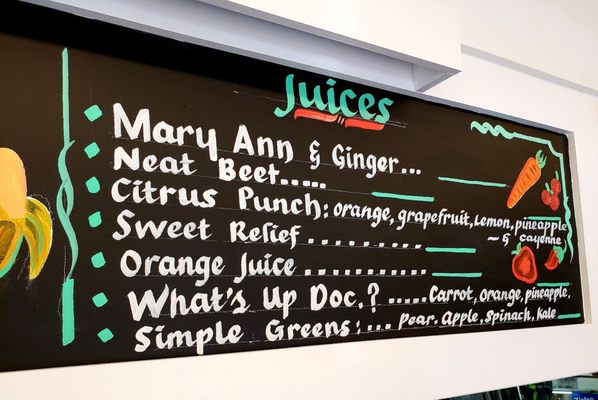 Juices
Mary Ann & Ginger...
Neat Beet.....
Citrus Punch: orange, grapefruit, Lemon, pineapple
~ & cayenne
Sweet Relief ........
Orange Juice ...........
What's Up Doc.? ...... Carrot, Orange, pineapple,
Simple Greens: ... Pear. Apple, Spinach, Kale